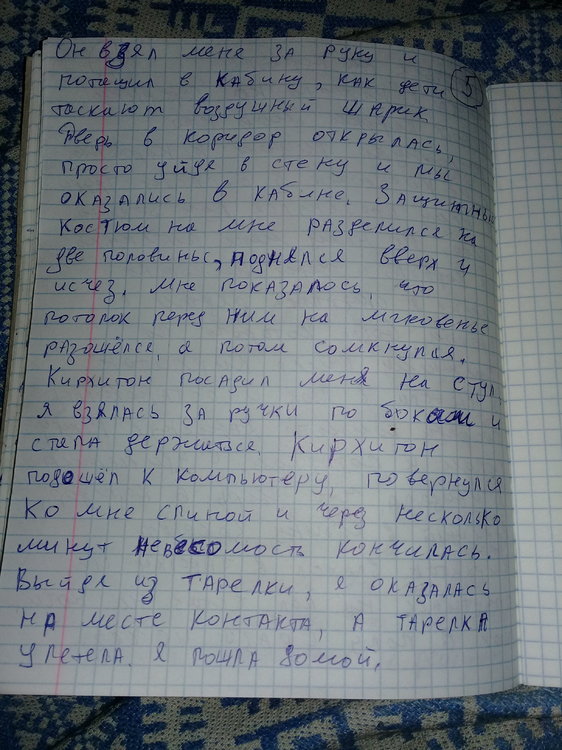 Он взял мене за руку и
потащил в кабину, как дети
5
таскают воздушный шарик.
Дверь в коридор открылась,
просто уйдя в стену и мы
оказались в кабине. Защитный
костюм на мне разделился на
две половины, поднялся вверх и
исчез. Мне показалось, что
потолок перед ним на мгновенье
разошёлся, а потом сомкнулся.
Кирхитон посадил меня на стул,
я взялась за ручки по бокам и
стала держаться. Кирхитон
подошёл к компьютеру, повернулся
ко мне спиной и через несколько
минут невесомость кончилась.
Выйдя из тарелки, я оказалась
на месте контакта, а тарелка
улетела. Я пошла домой.